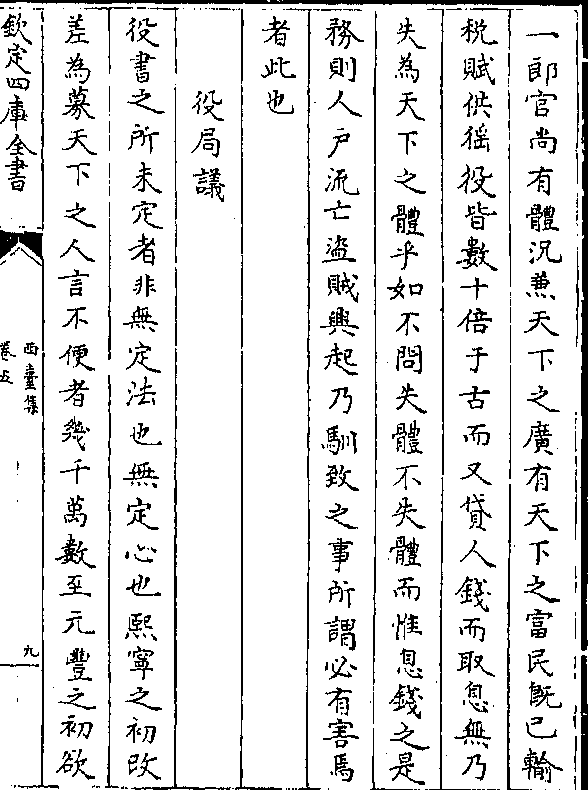 一郎官尚有體況兼天下之廣有天下之富民既已輸
税賦供徭役皆數十倍于古而又貸人錢而取息無乃
失為天下之體乎如不問失體不失體而惟息錢之是
務則人戸流亡盜賊興起乃馴致之事所謂必有害焉
者此也
役局議
役書之所未定者非無定法也無定心也熙寧之初改
差為募天下之人言不便者幾千萬數至元豐之初欲
欽定四庫全書
西臺集
卷五
九